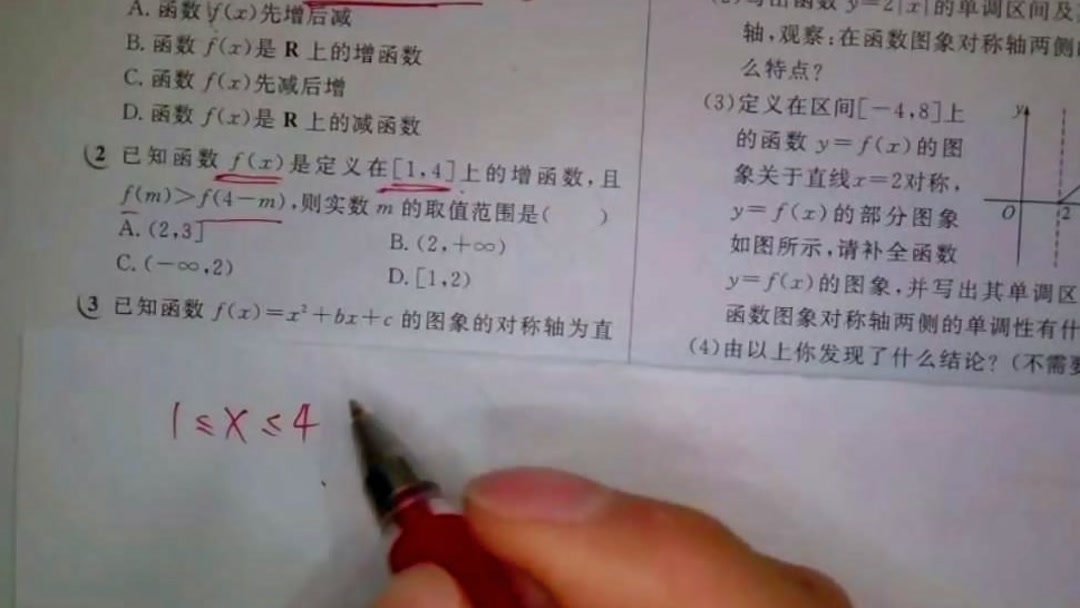 A. 函数 f(x)先增后减
B. 函数 f(x)是 R 上的增函数
C. 函数 f(x)先减后增
D. 函数 f(x)是 R 上的减函数
2 已知函数 f(x)是定义在[1,4]上的增函数,且
f(m)>f(4-m),则实数 m 的取值范围是( )
A. (2,3]
B. (2,+∞)
C. (-∞,2)
D. [1,2)
3 已知函数 f(x)=x²+bx+c 的图象的对称轴为直
1≤x≤4
函数 y=2|x|的单调区间及
轴,观察:在函数图象对称轴两侧
么特点?
(3)定义在区间[-4,8]上
的函数 y=f(x)的图
象关于直线x=2对称,
y=f(x)的部分图象
如图所示,请补全函数
y=f(x)的图象,并写出其单调区
函数图象对称轴两侧的单调性有什
(4)由以上你发现了什么结论?(不需要
y
O
2